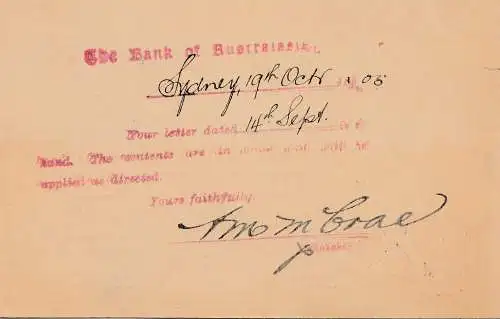 The Bank of Australasia.
Sydney, 19th Octr 1905
Your letter dated 14th Sept. is to
hand. The contents are in order and will be
applied as directed.
Yours faithfully,
McCrae